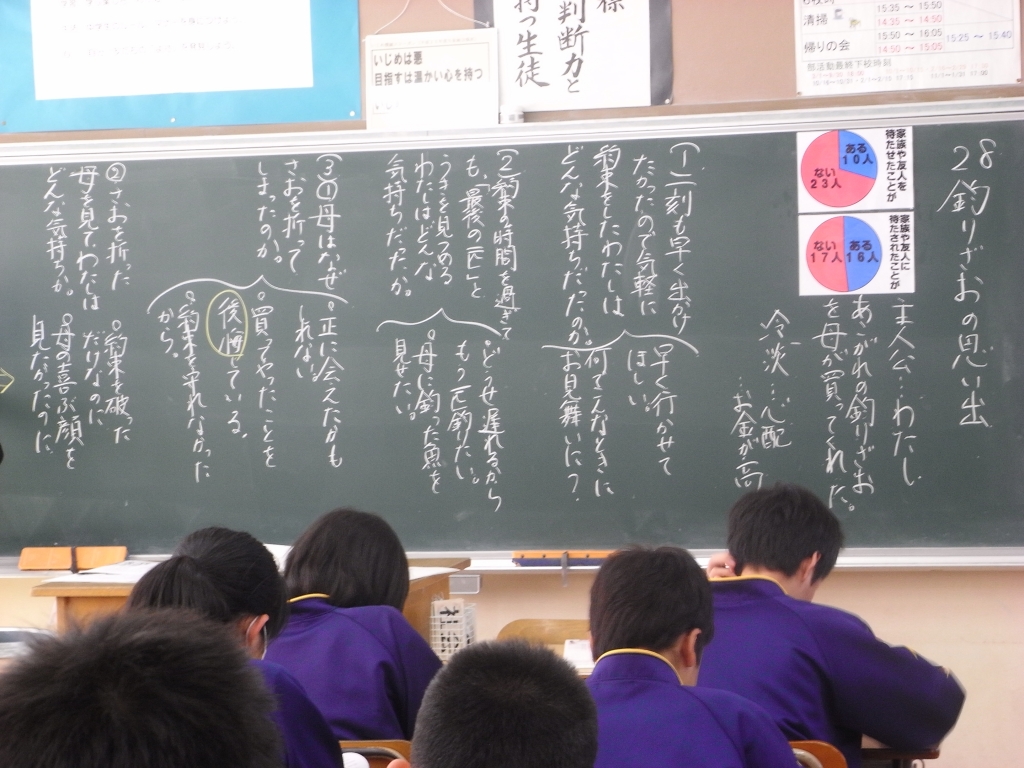 判断力と
持つ生徒
いじめは悪
目指すは温かい心を持つ
清掃
15:35 ～ 15:50
14:35 ～ 14:50
帰りの会
15:50 ～ 16:05
14:50 ～ 15:05
15:25 ～ 15:40
部活動最終下校時刻
28 釣りざおの思い出
家族や友人を
待たせたことが
ある
10人
ない
23人
家族や友人に
待たされたことが
ある
16人
ない
17人
主人公…わたし
あこがれの釣りざお
を母が買ってくれた。
冷淡…心配
…お金が高
(1)一刻も早く出かけ
たかったので気軽に
約束をしたわたしは
どんな気持ちだったのか。
早く行かせて
ほしい。
何でこんなときに
お見舞いに？
(2)約束の時間を過ぎて
も、「最後の一匹」と
うきを見つめる
わたしはどんな
気持ちだったか。
どうせ遅れるから
もう一匹釣りたい。
母に釣った魚を
見せたい。
(3)①母はなぜ
さおを折って
しまったのか。
正に会えたかも
しれない。
買ってやったことを
後悔している。
約束を守れなかった
から。
②さおを折った
母を見てわたしは
どんな気持ちか。
約束を破った
だけなのに
母の喜ぶ顔を
見たかったのに